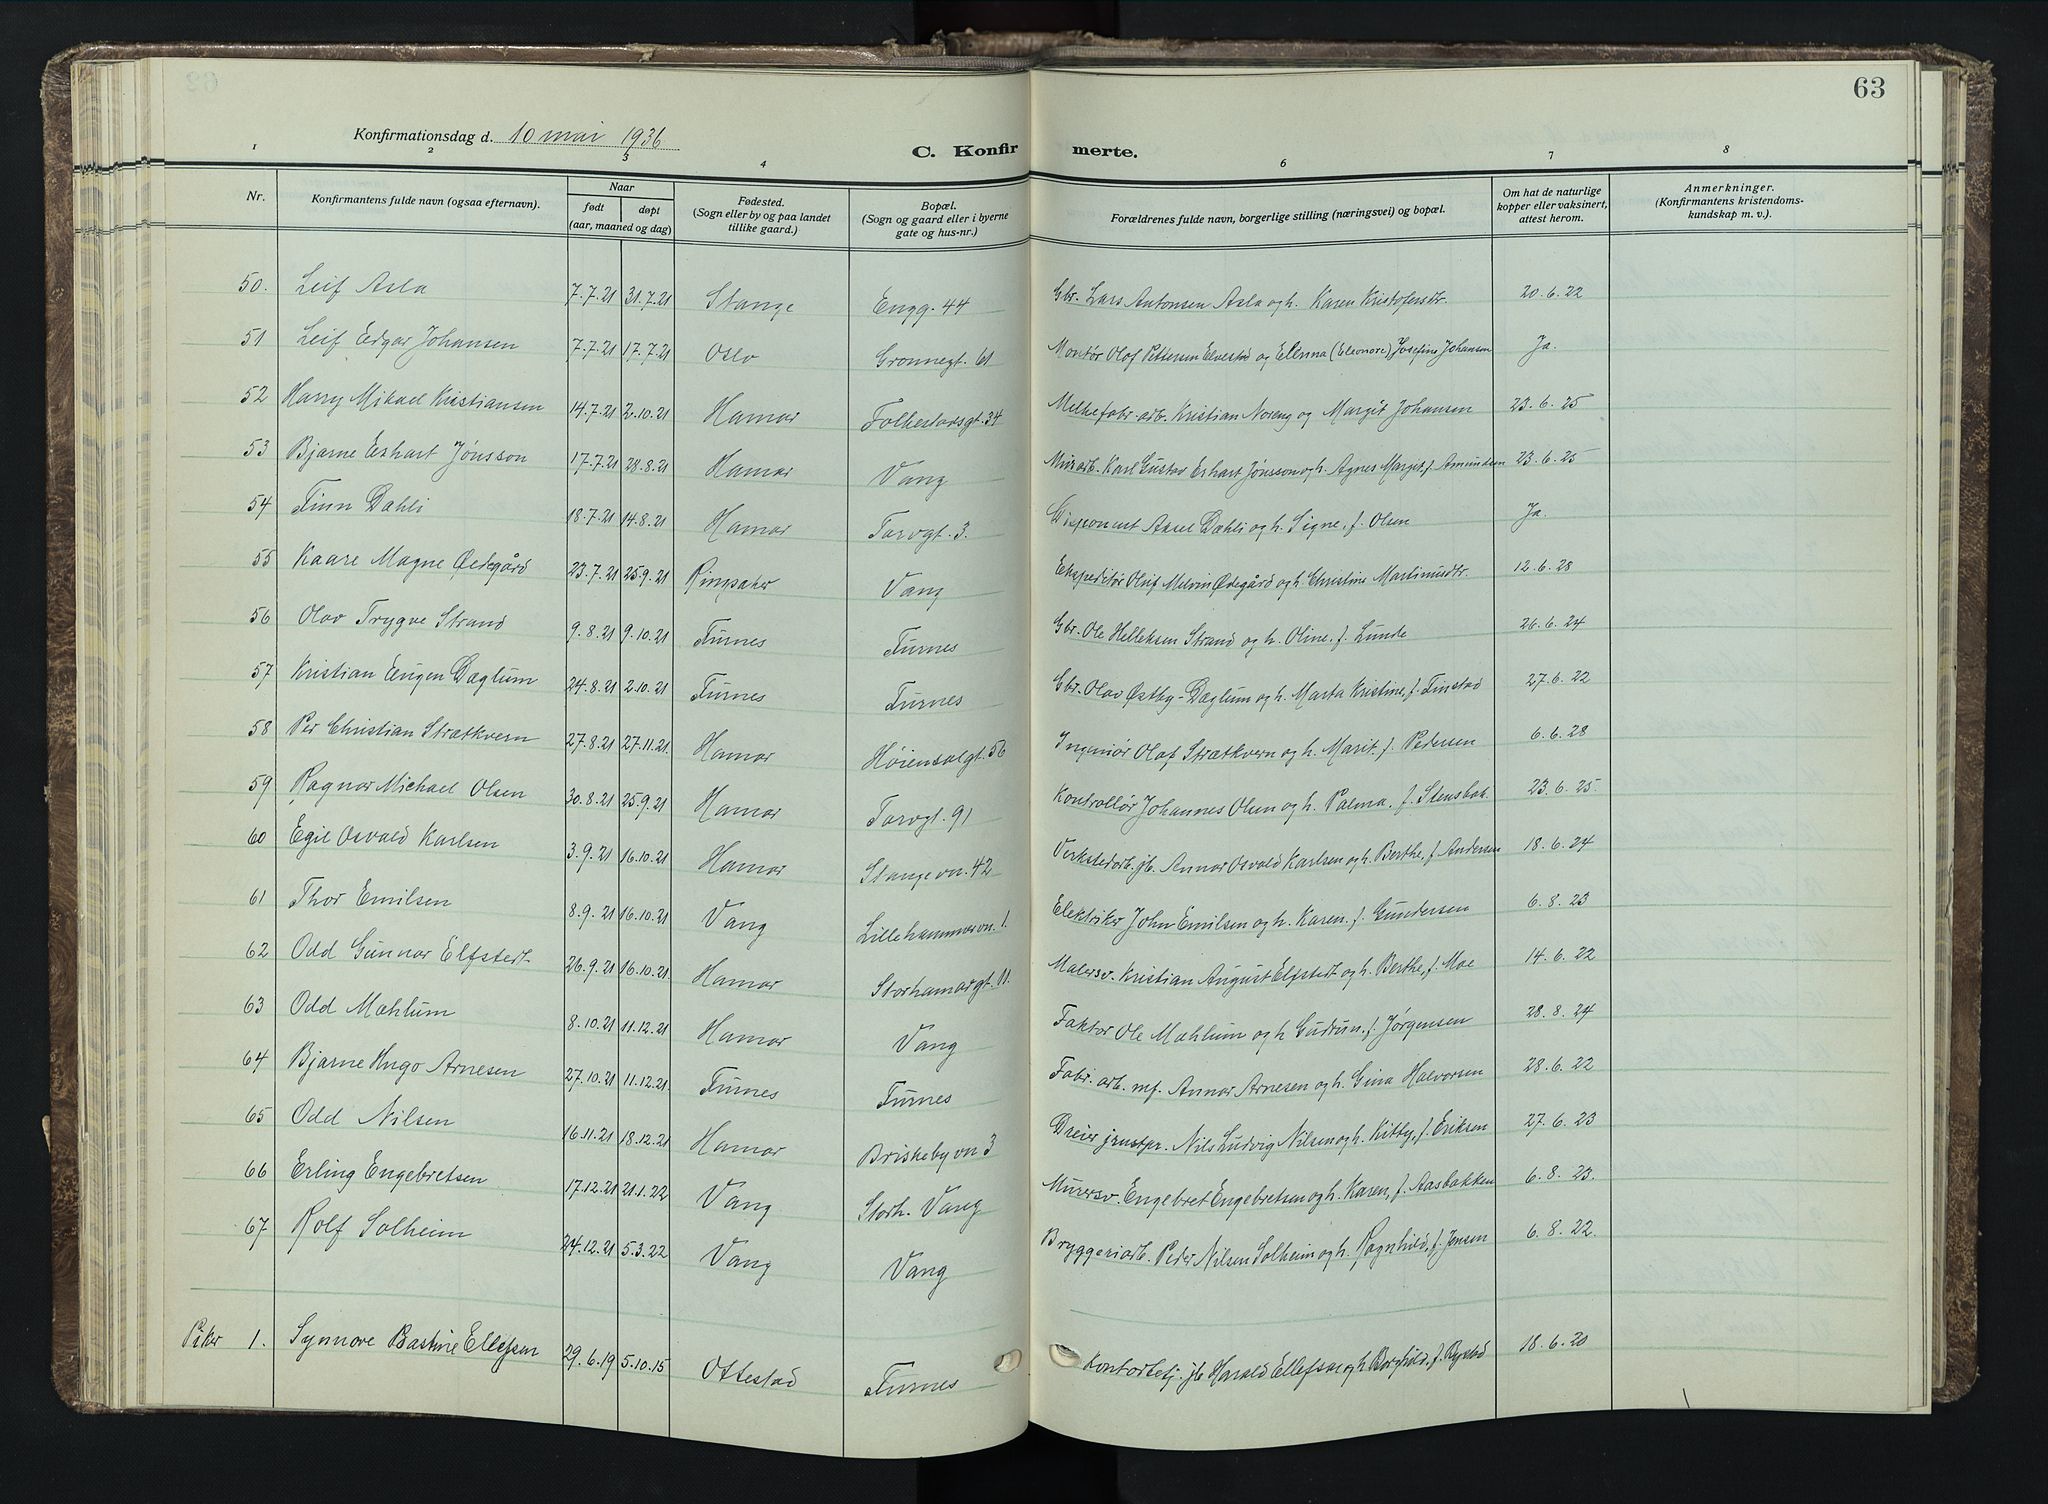 63
Konfirmationsdag d. 10 mai 1936
C. Konfirmerte.
1 2 3 4 6 7 8
Nr. Konfirmantens fulde navn (ogsaa efternavn). Naar født døpt (aar, maaned og dag) Fødested. (Sogn eller by og paa landet tillike gaard.) Bopæl. (Sogn og gaard eller i byerne gate og hus-nr.) Forældrenes fulde navn, borgerlige stilling (næringsvei) og bopæl. Om hat de naturlige kopper eller vaksinert, attest herom. Anmerkninger. (Konfirmantens kristendomskundskap m. v.).
50. Leif Asla 7.7.21 31.7.21 Stange Engg. 44 Gbr. Lars Antonsen Asla og h. Karen Kristofersdtr. 20.6.22
51 Leif Edgar Johansen 7.7.21 17.7.21 Oslo Grønnegt. 61 Montør Olaf Pettersen Elvestad og Elenna (Eleonore) Josefine Johansen Ja.
52 Harry Mikael Kristiansen 14.7.21 2.10.21 Hamar Folkestadsgt. 34 Melkefabr. arb. Kristian Noreng og Margit Johansen 23.6.25
53 Bjarne Erhart Jónsson 17.7.21 28.8.21 Hamar Vang Murarb. Karl Gustav Erhart Jónsson og h. Agnes Margit, f. Amundsen 23.6.25
54 Finn Dæhli 18.7.21 14.8.21 Hamar Torvgt. 3. Disponent Aksel Dæhli og h. Signe, f. Olsen Ja.
55 Kaare Magne Ødegård 23.7.21 25.9.21 Ringsaker Vang Ekspeditør Oluf Melvin Ødegård og h. Christine Martinusdtr. 12.6.28
56 Olav Trygve Strand 9.8.21 9.10.21 Furnes Furnes Gbr. Ole Helleksen Strand og h. Oline, f. Lunde 26.6.24
57 Kristian Eugen Dæglum 24.8.21 2.10.21 Furnes Furnes Gbr. Olav Østby-Dæglum og h. Marta Kristine, f. Finstad 27.6.22
58 Per Christian Strætkvern 27.8.21 27.11.21. Hamar Høiensalgt. 56 Ingeniør Olaf Strætkvern og h. Marit, f. Pedersen 6.6.28
59 Ragnar Michael Olsen 30.8.21 25.9.21 Hamar Torvgt. 91 Kontrollør Johannes Olsen og h. Palma, f. Stensbak. 23.6.25.
60 Egil Osvald Karlsen 3.9.21 16.10.21 Hamar Stangevn. 42 Verkstedarb. jb. Annar Osvald Karlsen og h. Berthe, f. Andersen 18.6.24
61 Thor Emilsen 8.9.21 16.10.21 Vang Lillehammervn. 1. Elektriker John Emilsen og h. Karen, f. Gundersen 6.8.23
62 Odd Gunnar Elfstedt 26.9.21 16.10.21 Hamar Storhamargt. 11. Malersv. Kristian August Elfstedt og h. Berthe, f. Moe 14.6.22
63 Odd Mæhlum 8.10.21 11.12.21 Hamar Vang Faktor Ole Mæhlum og h Gudrun, f. Jørgensen 28.8.24
64 Bjarne Hugo Arnesen 27.10.21 11.12.21 Furnes Furnes Fabr. arb. mf. Annar Arnesen og h. Gina Halvorsen 28.6.22
65 Odd Nilsen 16.11.21 18.12.21 Hamar Briskebyvn 3 Dreier Nils Ludvig Nilsen og h. Kitty, f. Eriksen 27.6.23
66 Erling Engebretsen 17.12.21 21.1.22 Vang Storh. Vang Murersv. Engebret Engebretsen og h. Karen, f. Aasbakken 6.8.23.
67 Rolf Solheim 24.12.21 5.3.22 Vang Vang Bryggeriarb. Peder Nilsen Solheim og h. Ragnhild, f. Jensen 6.8.22
Piker 1. Synnøve Bastine Ellefsen 29.6.19 5.10.15 Ottestad Furnes Kontorbetj. jb Harald Ellefsen og h. Borghild, f. Rystad 18.6.20